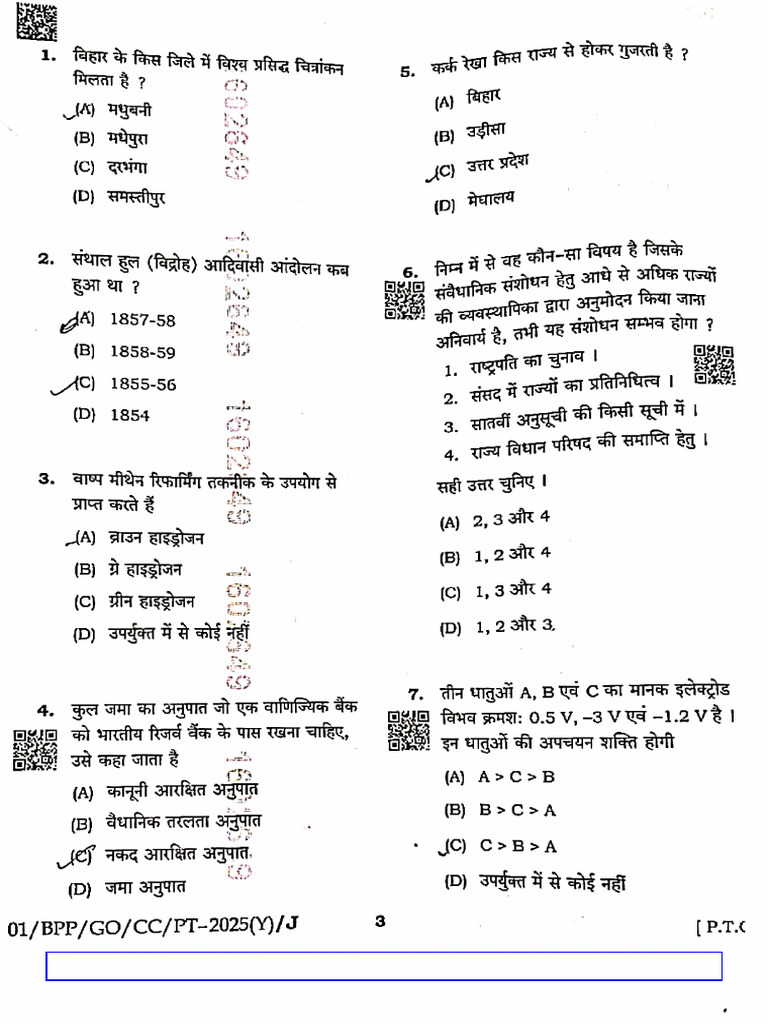 1. विहार के किस जिले में विश्व प्रसिद्ध चित्रांकन
मिलता है ?
(A) मधुबनी
(B) मधेपुरा
(C) दरभंगा
(D) समस्तीपुर
2. संथाल हुल (विद्रोह) आदिवासी आंदोलन कब
हुआ था ?
(A) 1857-58
(B) 1858-59
(C) 1855-56
(D) 1854
3. वाष्प मीथेन रिफार्मिंग तकनीक के उपयोग से
प्राप्त करते हैं
(A) ब्राउन हाइड्रोजन
(B) ग्रे हाइड्रोजन
(C) ग्रीन हाइड्रोजन
(D) उपर्युक्त में से कोई नहीं
4. कुल जमा का अनुपात जो एक वाणिज्यिक बैंक
को भारतीय रिजर्व बैंक के पास रखना चाहिए,
उसे कहा जाता है
(A) कानूनी आरक्षित अनुपात
(B) वैधानिक तरलता अनुपात
(C) नकद आरक्षित अनुपात
(D) जमा अनुपात
5. कर्क रेखा किस राज्य से होकर गुजरती है ?
(A) बिहार
(B) उड़ीसा
(C) उत्तर प्रदेश
(D) मेघालय
6. निम्न में से वह कौन-सा विषय है जिसके
संवैधानिक संशोधन हेतु आधे से अधिक राज्यों
की व्यवस्थापिका द्वारा अनुमोदन किया जाना
अनिवार्य है, तभी यह संशोधन सम्भव होगा ?
1. राष्ट्रपति का चुनाव ।
2. संसद में राज्यों का प्रतिनिधित्व ।
3. सातवीं अनुसूची की किसी सूची में ।
4. राज्य विधान परिषद की समाप्ति हेतु ।
सही उत्तर चुनिए ।
(A) 2, 3 और 4
(B) 1, 2 और 4
(C) 1, 3 और 4
(D) 1, 2 और 3
7. तीन धातुओं A, B एवं C का मानक इलेक्ट्रोड
विभव क्रमश: 0.5 V, –3 V एवं –1.2 V है ।
इन धातुओं की अपचयन शक्ति होगी
(A) A > C > B
(B) B > C > A
(C) C > B > A
(D) उपर्युक्त में से कोई नहीं
01/BPP/GO/CC/PT–2025(Y)/J
3
[ P.T.O